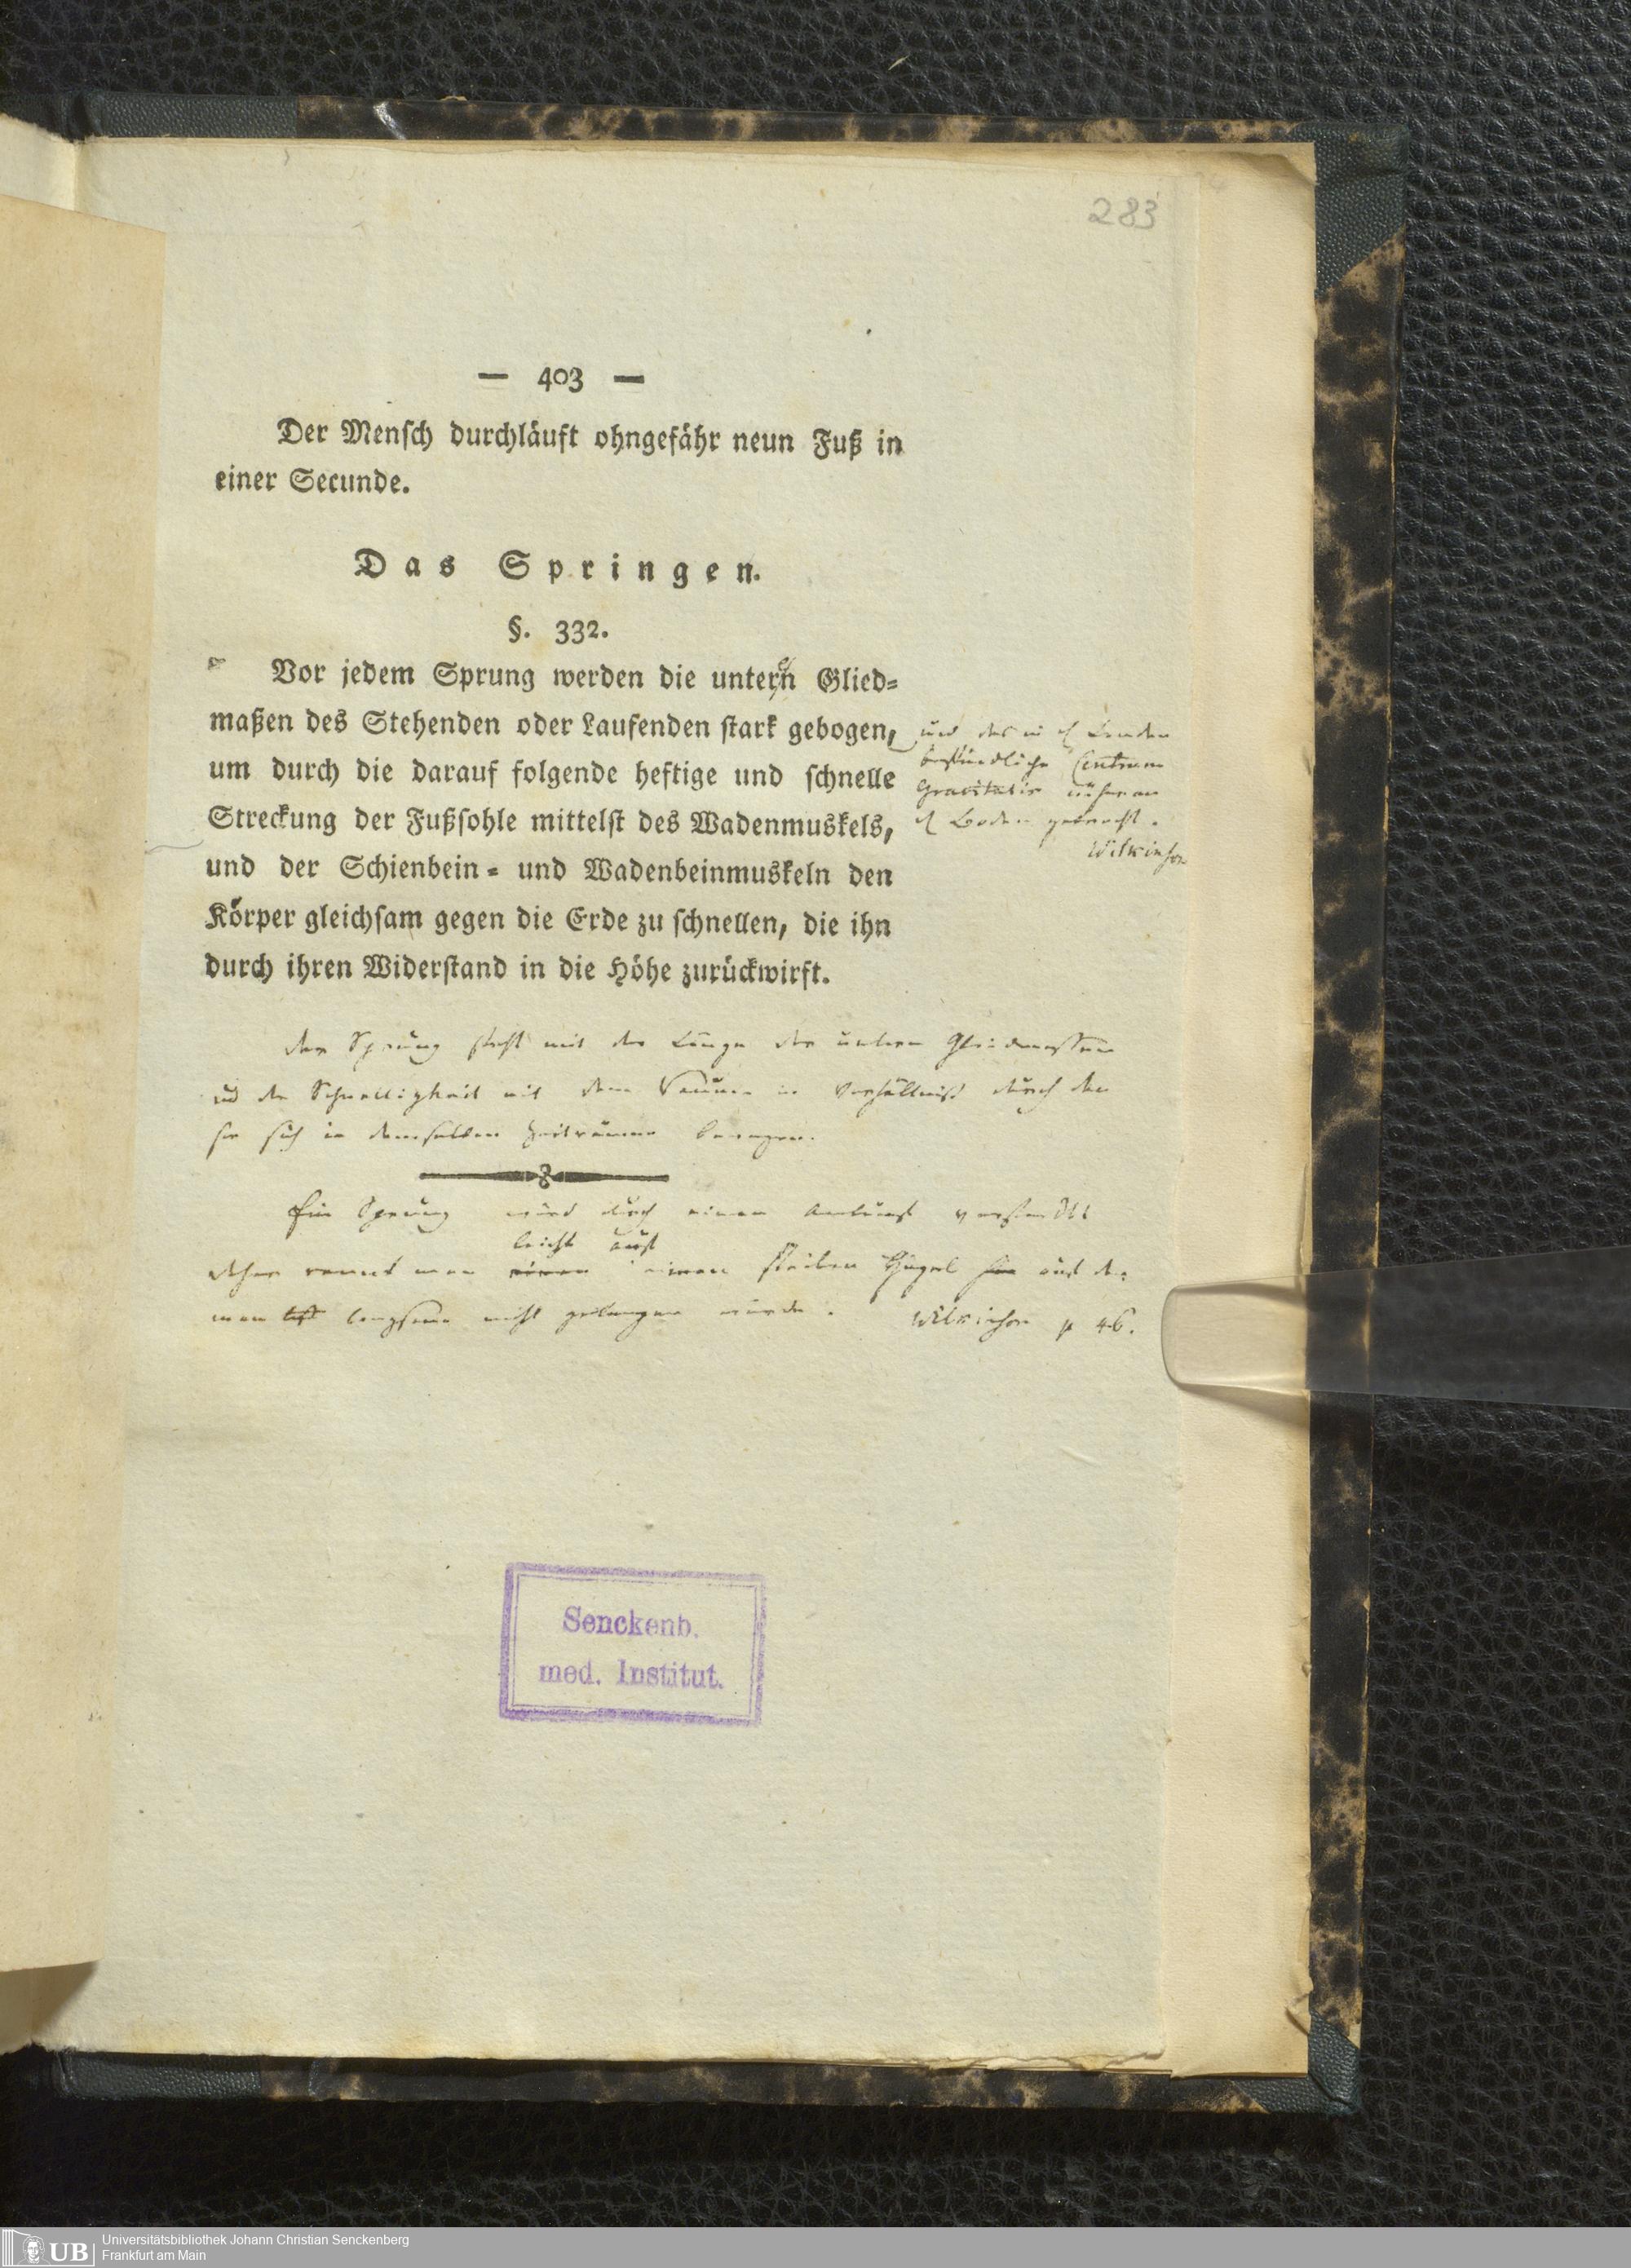 283
— 403 —
Der Mensch durchläuft ohngefähr neun Fuß in
einer Secunde.
Das Springen.
§. 332.
Vor jedem Sprung werden die untern Glied-
maßen des Stehenden oder Laufenden stark gebogen,
um durch die darauf folgende heftige und schnelle
Streckung der Fußsohle mittelst des Wadenmuskels,
und der Schienbein- und Wadenbeinmuskeln den
Körper gleichsam gegen die Erde zu schnellen, die ihn
durch ihren Widerstand in die Höhe zurückwirft.
und das in Lenden
befindliche Centrum
Gravitatis näher an
Boden gebracht.
Wilkinson
der Sprung steht mit der Länge der untern Gliedmassen
und der Schnelligkeit mit dem Raume in Verhältniß durch den
sie sich in demselben Zeitraume bewegen.
Ein Sprung wird durch einen Anlauf verstärkt
leicht auf
daher rennt man einen einen steilen Hügel auf den
man langsam nicht gelangen würde. Wilkinson p 46.
Senckenb.
med. Institut.
UB
Universitätsbibliothek Johann Christian Senckenberg
Frankfurt am Main